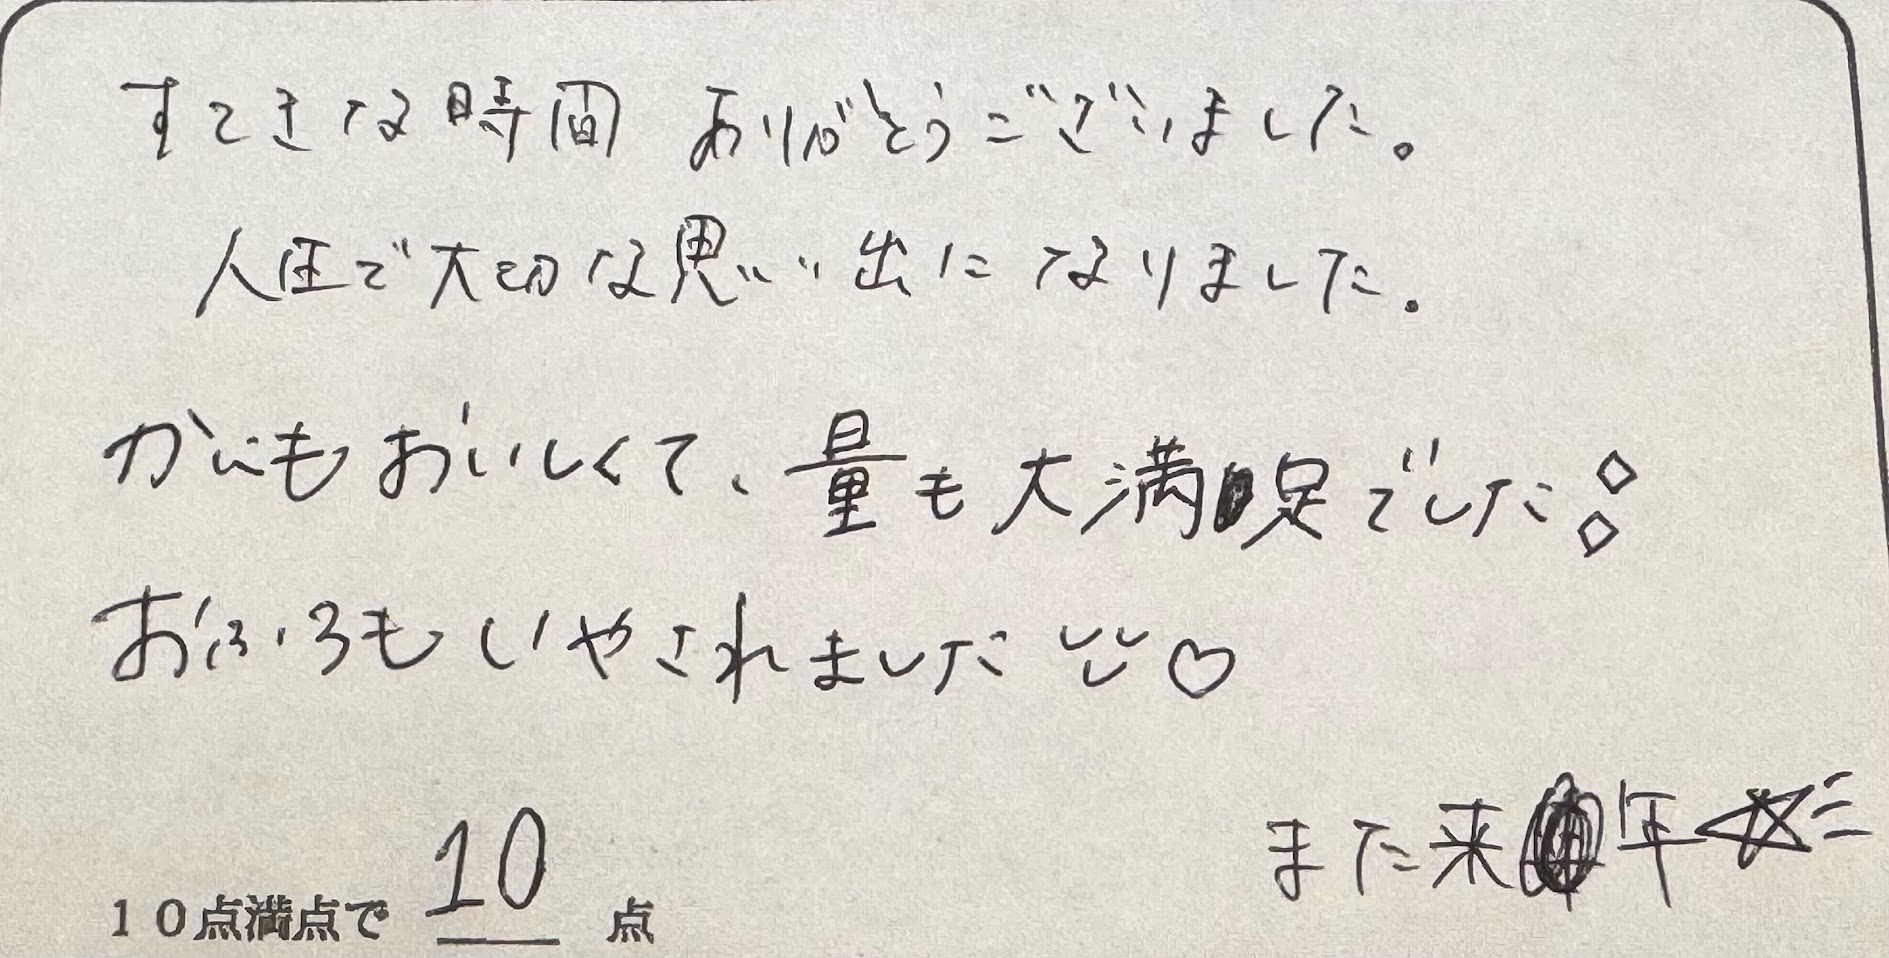 すてきな時間 ありがとうございました。
人生で大切な思い出になりました。
かにもおいしくて、量も大満足でした
おふろもいやされました♡
また来年☆
10点満点で 10 点